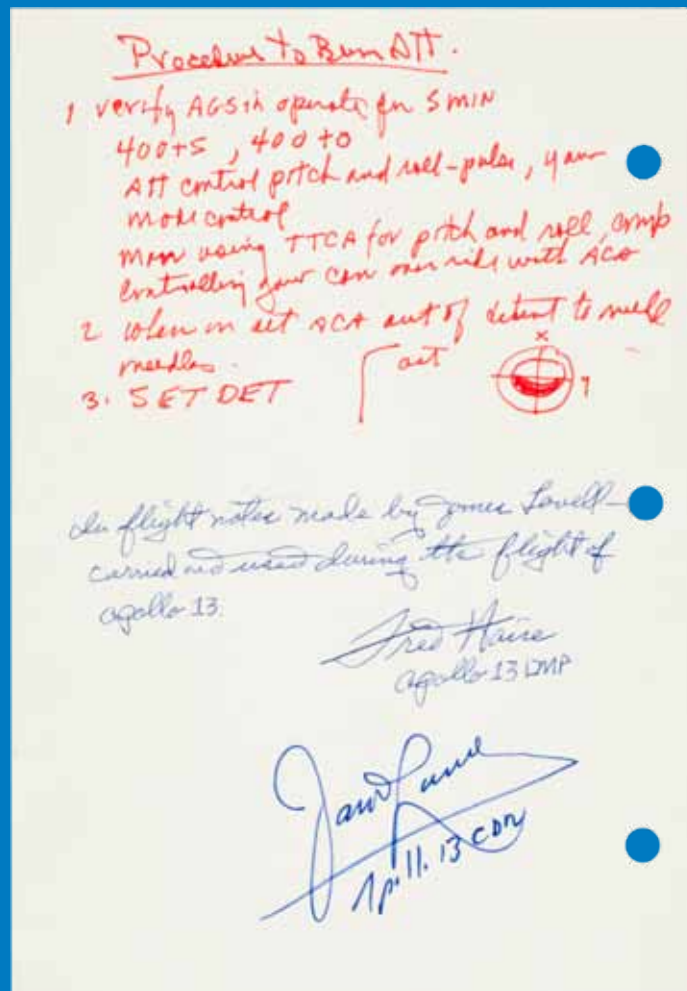 Procedure to Burn Att.
1 verify AGS in operate for 5 MIN
400+5, 400+0
Att control pitch and roll-pulse, yaw-
mode control
man using TTCA for pitch and roll, comp
controlling yaw can over ride with ACA
2 when in att ACA out of detent to null
needles.
3. SET DET
att
X
In flight notes made by James Lovell-
carried and used during the flight of
apollo 13
Fred Haise
apollo 13 LMP
James Lovell
Apollo 13 CDR